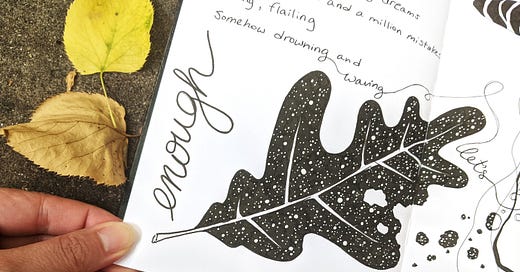 dreams
and a million mistakes
flailing
Somehow drowning and
waving
enough
let's